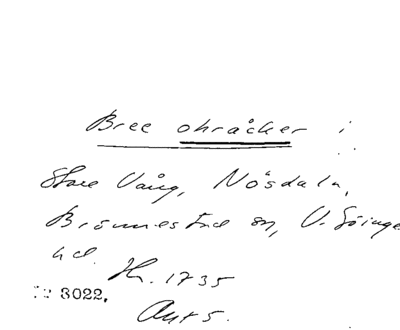 Bree ohråcker i
Store Vång, Nösdala,
Brönnestad sn, V. Göinge
hd. Hr. 1735
3022.
Aut 5.